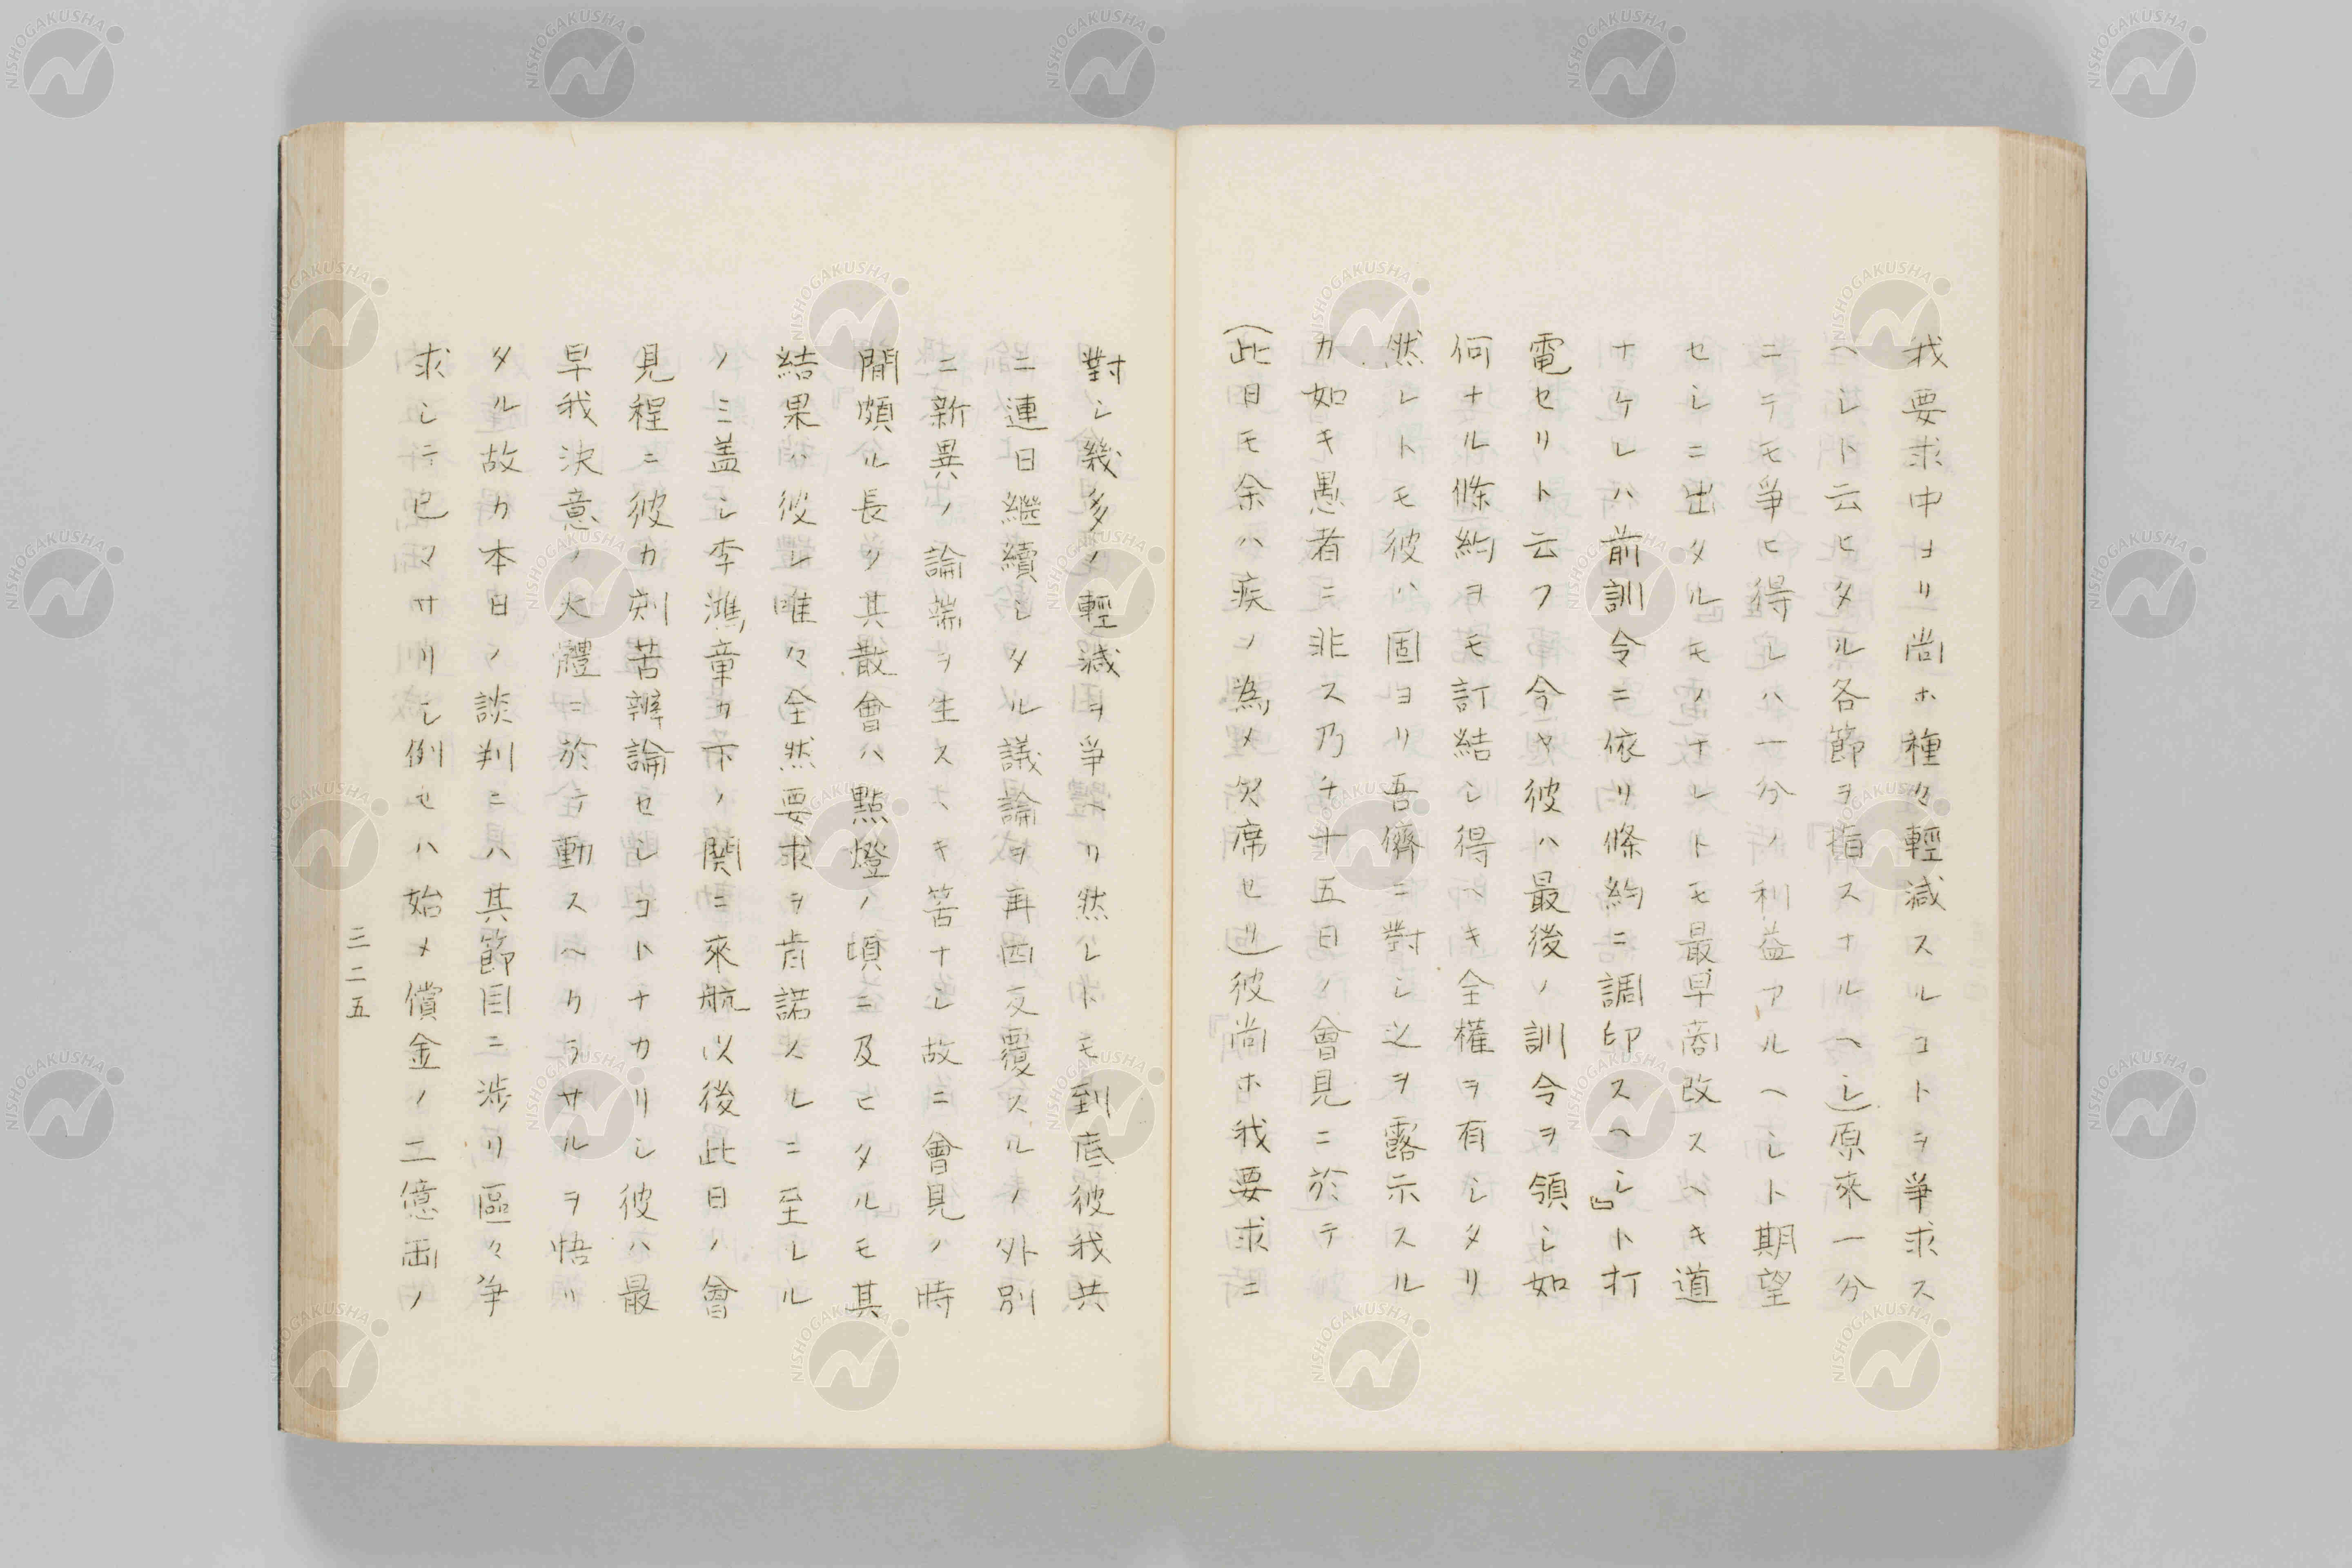 我要求中ヨリ尚ホ種々輕減スルコトヲ爭求ス
ヘシト云ヒタル各節ヲ指スナルヘシ)原來一分
ニテモ爭ヒ得レハ一分ノ利益アルヘシト期望
セシニ出タルモノナレトモ最早商改スヘキ道
ナケレハ前訓令ニ依リ條約ニ調印スヘシ』ト打
電セリト云フ今ヤ彼ハ最後ノ訓令ヲ領シ如
何ナル條約ヲモ訂結シ得ヘキ全權ヲ有シタリ
然レトモ彼ハ固ヨリ吾儕ニ對シ之ヲ露示スル
カ如キ愚者ニ非ス乃チ十五日ノ會見ニ於テ
(此日モ余ハ疾ノ為メ欠席セリ)彼尚ホ我要求ニ
對シ幾多ノ輕減ヲ爭ヘリ然レトモ到底彼我共
ニ連日繼續シタル議論ヲ再四反覆スルノ外別
ニ新異ノ論端ヲ生スヘキ筈ナシ故ニ會見ノ時
間頗ル長ク其散會ハ點燈ノ頃ニ及ヒタルモ其
結果ハ彼レ唯々全然要求ヲ肯諾スルニ至レル
ノミ盖シ李鴻章カ下ノ關ニ來航以後此日ノ會
見程ニ彼カ刻苦辨論セシコトナカリシ彼ハ最
早我決意ノ大體ニ於テ動スヘクラサルヲ悟リ
タル故カ本日ノ談判ニハ其節目ニ渉リ區々爭
求シテ已マサリシ例セハ始メ償金ノ二億兩ノ
三二五
NISHOGAKUSHA